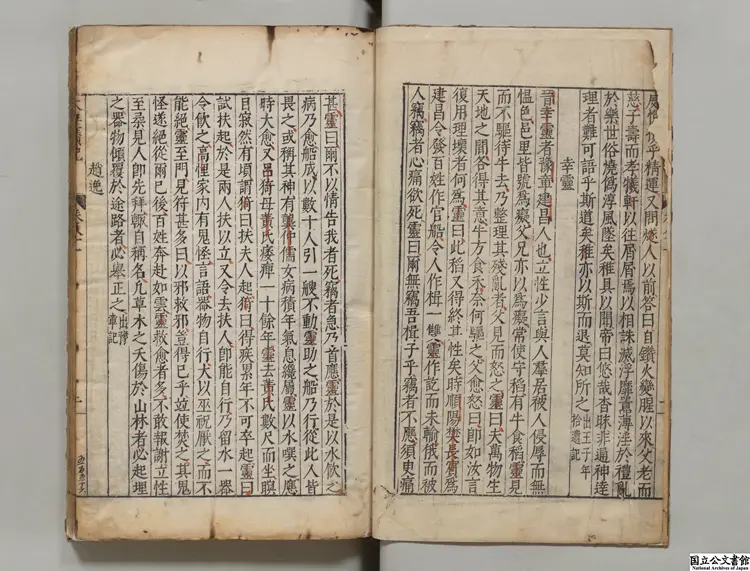 精運又問㷱人以前答曰自鑽火變腥以來父老而
慈子壽而孝犧軒以往屑屑焉以相誅滅浮靡囂薄淫於禮亂
於樂世俗澆偽淳風墜矣稚具以聞帝曰悠哉杳昧非通神達
理者難可語乎斯道矣稚亦以斯而退莫知所之出王子年拾遺記
幸靈
晉幸靈者豫章建昌人也立性少言與人羣居被人侵辱而無
慍色邑里皆號為癡父兄亦以為癡常使守稻有牛食稻靈見
而不驅待牛去乃整理其殘亂者父見而怒之靈曰夫萬物生
天地之間各得其意牛方食禾奈何驅之父愈怒曰即如汝言
復用理壞者何為靈曰此稻又得終其性矣時順陽樊長賓為
建昌令發百姓作官船令人作楫一雙靈作訖而未輸俄而被
人竊竊者心痛欲死靈曰爾無竊吾楫子乎竊者不應須臾痛
甚靈曰爾不以情告我者死竊者急乃首應靈於是以水飲之
病乃愈船成以數十人引一艘不動靈助之船乃行從此人皆
畏之或稱其神有龔仲儒女病積年氣息纔屬靈以水噀之應
時大愈又呂猗母黃氏痿痺一十餘年靈去黃氏數尺而坐瞑
目寂然有頃謂猗曰扶夫人起猗曰得疾累年不可卒起靈曰
試扶起於是兩人扶以立又令去扶人即能自行乃留水一器
令飲之高悝家內有鬼怪言語器物自行大以巫祝厭之而不
能絕靈至門見符甚多曰以邪救邪豈得已乎並使焚之其鬼
怪遂絕從爾已後百姓奔赴如雲靈救愈者多不敢報謝立性
至柔見人即先拜輙自稱名凡草木之夭傷於山林者必起理
之器物傾覆於途路者必舉正之出豫章記
趙逸
国立公文書館
National Archives of Japan